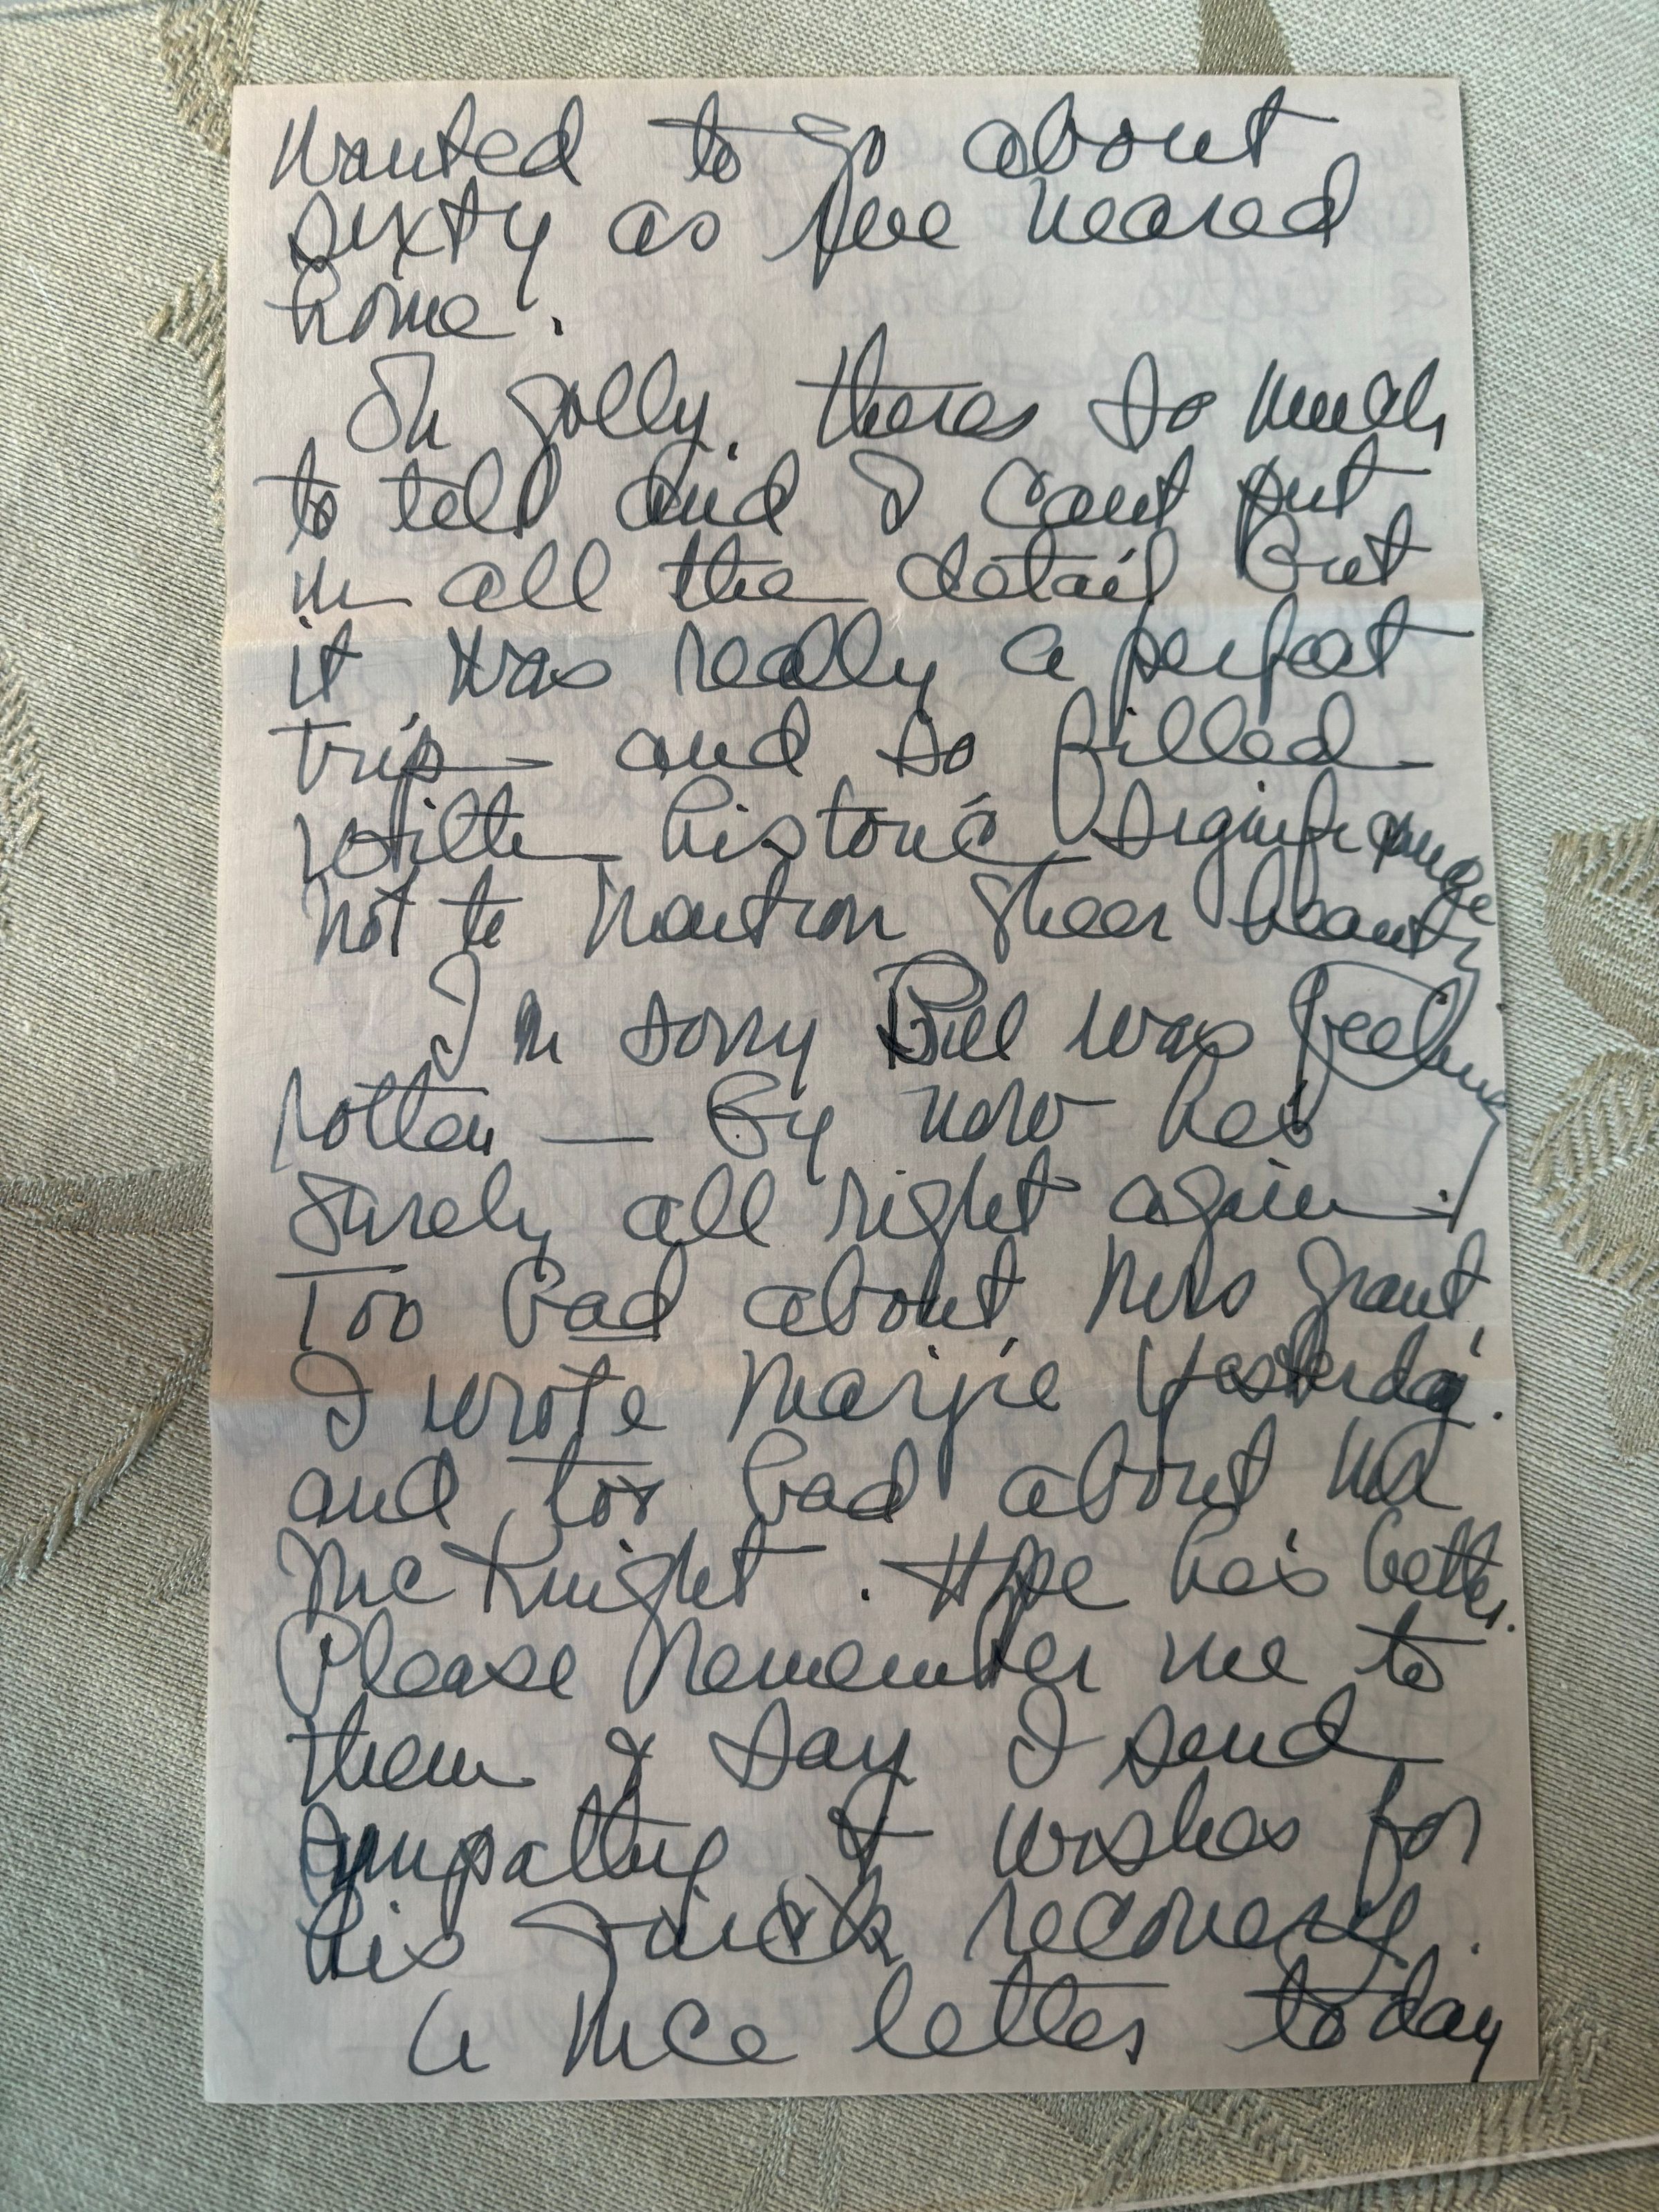 wanted to go about
sixty as we neared
home.
Oh golly, theres so much
to tell and I cant put
in all the detail but
it was really a perfect
trip — and so filled
with historic significance
not to mention sheer beauty
I'm sorry Bill was feeling
rotten — By now he's
surely all right again.
Too bad about Mrs Grant,
I wrote Marjie yesterday.
and too bad about Mr
McKnight. Hope he's better.
Please remember me to
them & say I send
sympathy & wishes for
his quick recovery.
A nice letter today